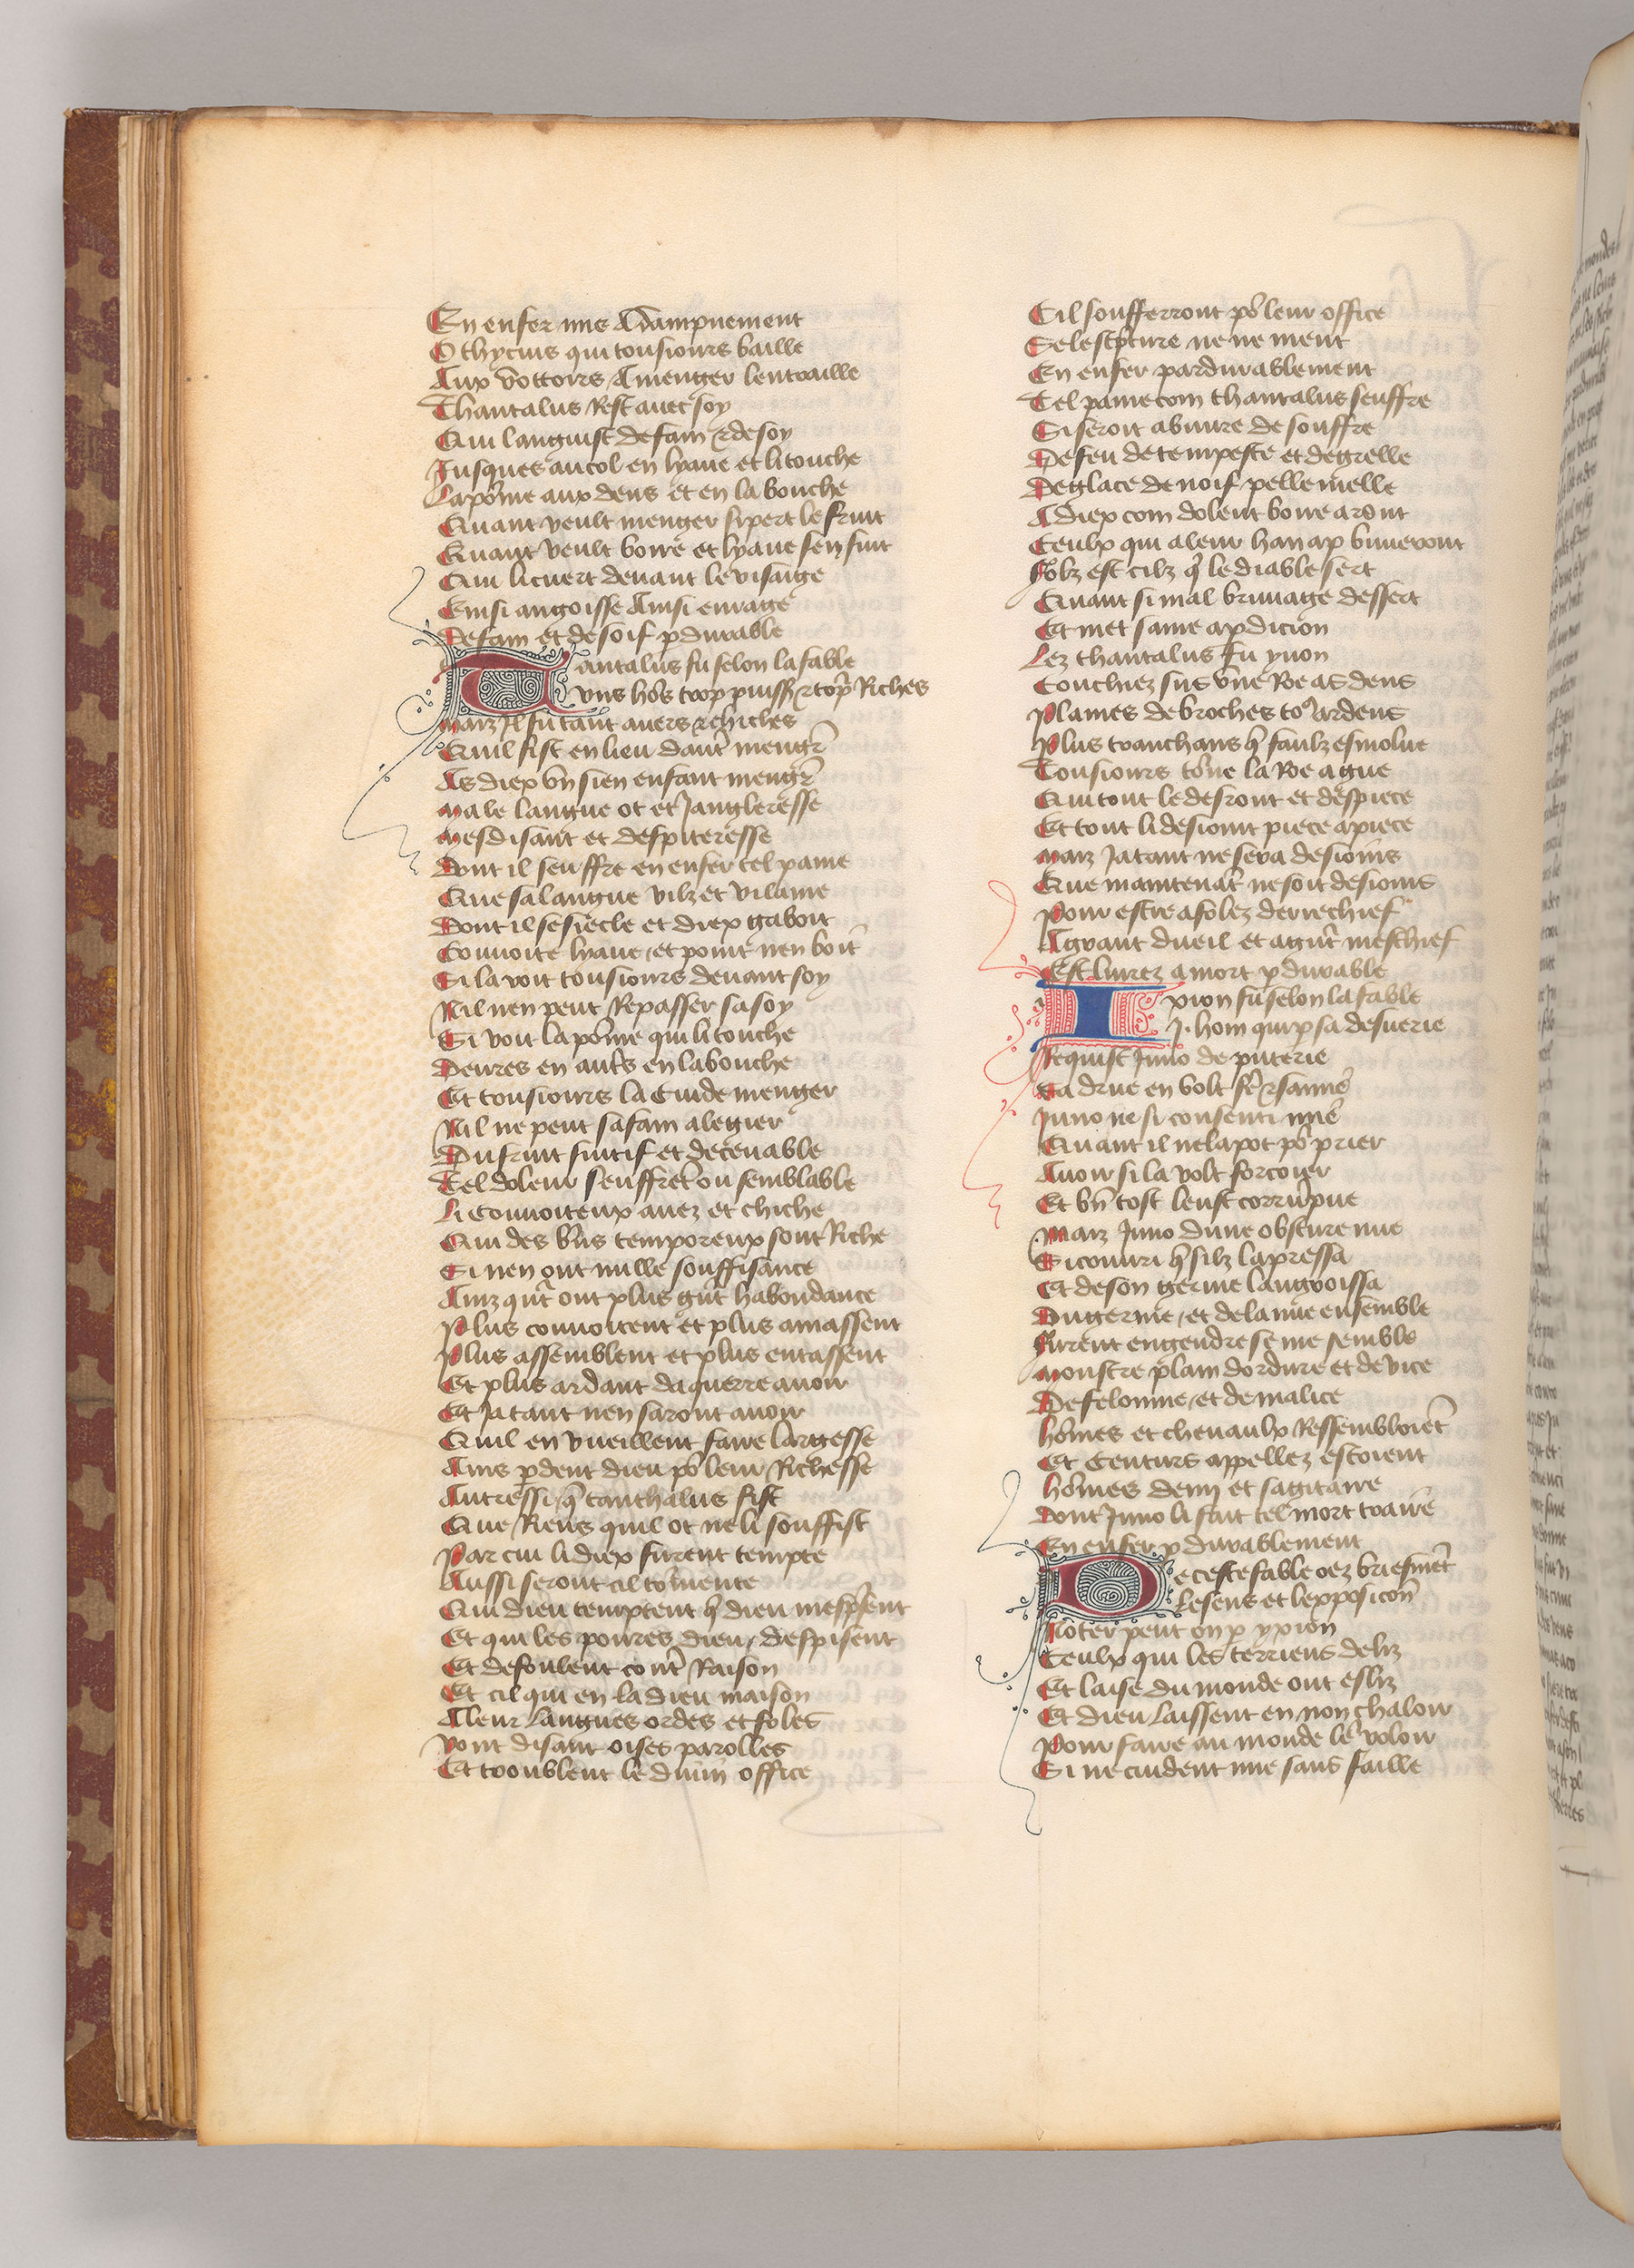 En enfer mis a dampnement
O thycius qui tousiours baille
Aux vottoirs a menger lentraille
Thantalus rest auec soy
Qui languist de fain et de soy
Jusques au col en lyaue et li touche
La pomme aux dens et en la bouche
Quant veult menger si pert le fruit
Quant veult boire et lyaue sen fuit
Qui li cuert deuant le visaige
Einsi angoisse Ainsi enrage
De fain et de soif pdurable
Tantalus fu selon la fable
vns homs trop puissans et trop Riches
maiz Il fu tant auers et chiches
Quil fist en lieu dautre menger
As diex vn sien enfant menger
male langue ot et Jangleresse
mesdisant et despiteresse
Dont il seuffre en enfer tel paine
Que sa langue vilz et vilaine
Dont il se siecle et diex gaboit
Couuoite lyaue et point nen boit
Si la voit tousiours deuant soy
Nil nen peut Repasser sa soy
Si voit la pomme qui li touche
Deures en autres en la bouche
Et tousiours la Cuide menger
Nil ne peut sa fain alegier
Du fruit fuitif et deceuable
Tel doleur seuffrent ou semblable
Li Conuoiteux auez et chiche
Qui des biens temporeux sont Riche
Si nen ont nulle souffisance
Ainz quant ont plus grant habondance
Plus conuoitent et plus amassent
Plus assemblent et plus entassent
Et plus ardant daquerre auoir
Et Ja tant nen saront auoir
Quil en vueillent faire largesse
Ains pdent dieu pour leur Richesse
Autressi que tanthalus fist
Que Riens quil ot ne li souffist
Par cui li diex furent tempte
Aussi seront cil tormente
Qui dieu temptent que dieu mesprisent
Et qui les poures dieu despisent
Et defoulent contre Raison
Et cil qui en la dieu maison
A leur Langues ordes et foles
Vont disant oises parolles
Et troublent le diuin office
Cil soufferront pour leur office
Se lescripture ne ne ment
En enfer pardurablement
Tel paine com thantalus seuffre
Si seront abuure de souffre
De feu de tempeste et de grelle
De glace de noif pelle melle
A diex com dolent boire aront
Ceulx qui a leur hanap buueront
Folz est cilz que le diable sert
Quant si mal bruuage dessert
Et met same a pdicion
Lez thantalus fu yxion
Couchiez sus vne Roe as dens
Plaines de broches tous ardens
Plus tranchans que faulz esmolue
Tousiours torne la Roe ague
Qui tout le desront et despiece
Et tout li desioint piece a piece
maiz Ja tant ne sera desioins
Que maintenant ne soit desioins
Pour estre asolez derrechief
A grant dueil et a grant meschief
Est liurez a mort pdurable
Ixion fu selon la fable
.J. hom qui par sa desuerie
Requist Juno de puterie
Sa drue en volt fere et samie
Juno ne si consenti mie
Quant il ne la pot pour prier
Auoir si la volt forcoier
Et bien tost leust corrumpue
Maiz Juno dune obscure nue
Si couuri que silz lapressa
Et de son germe langroissa
Du germe et de la nue ensemble
Furent engendre se me semble
monstre plain dordure et de vice
De felonnie et de malice
hommes et cheuaulx Ressembloient
Et Centurs appellez estoient
hommes demy et sagitaire
Dont Juno li fait tel mort traire
En enfer pdurablement
De ceste fable oez briesment
Le sens et lexpposicion
Noter peut on p yxion
Ceulx qui les terriens deliz
Et laise du monde ont esliz
Et dieu laissent en non chaloir
Pour faire au monde le voloir
Si ne cuident mie sans faille